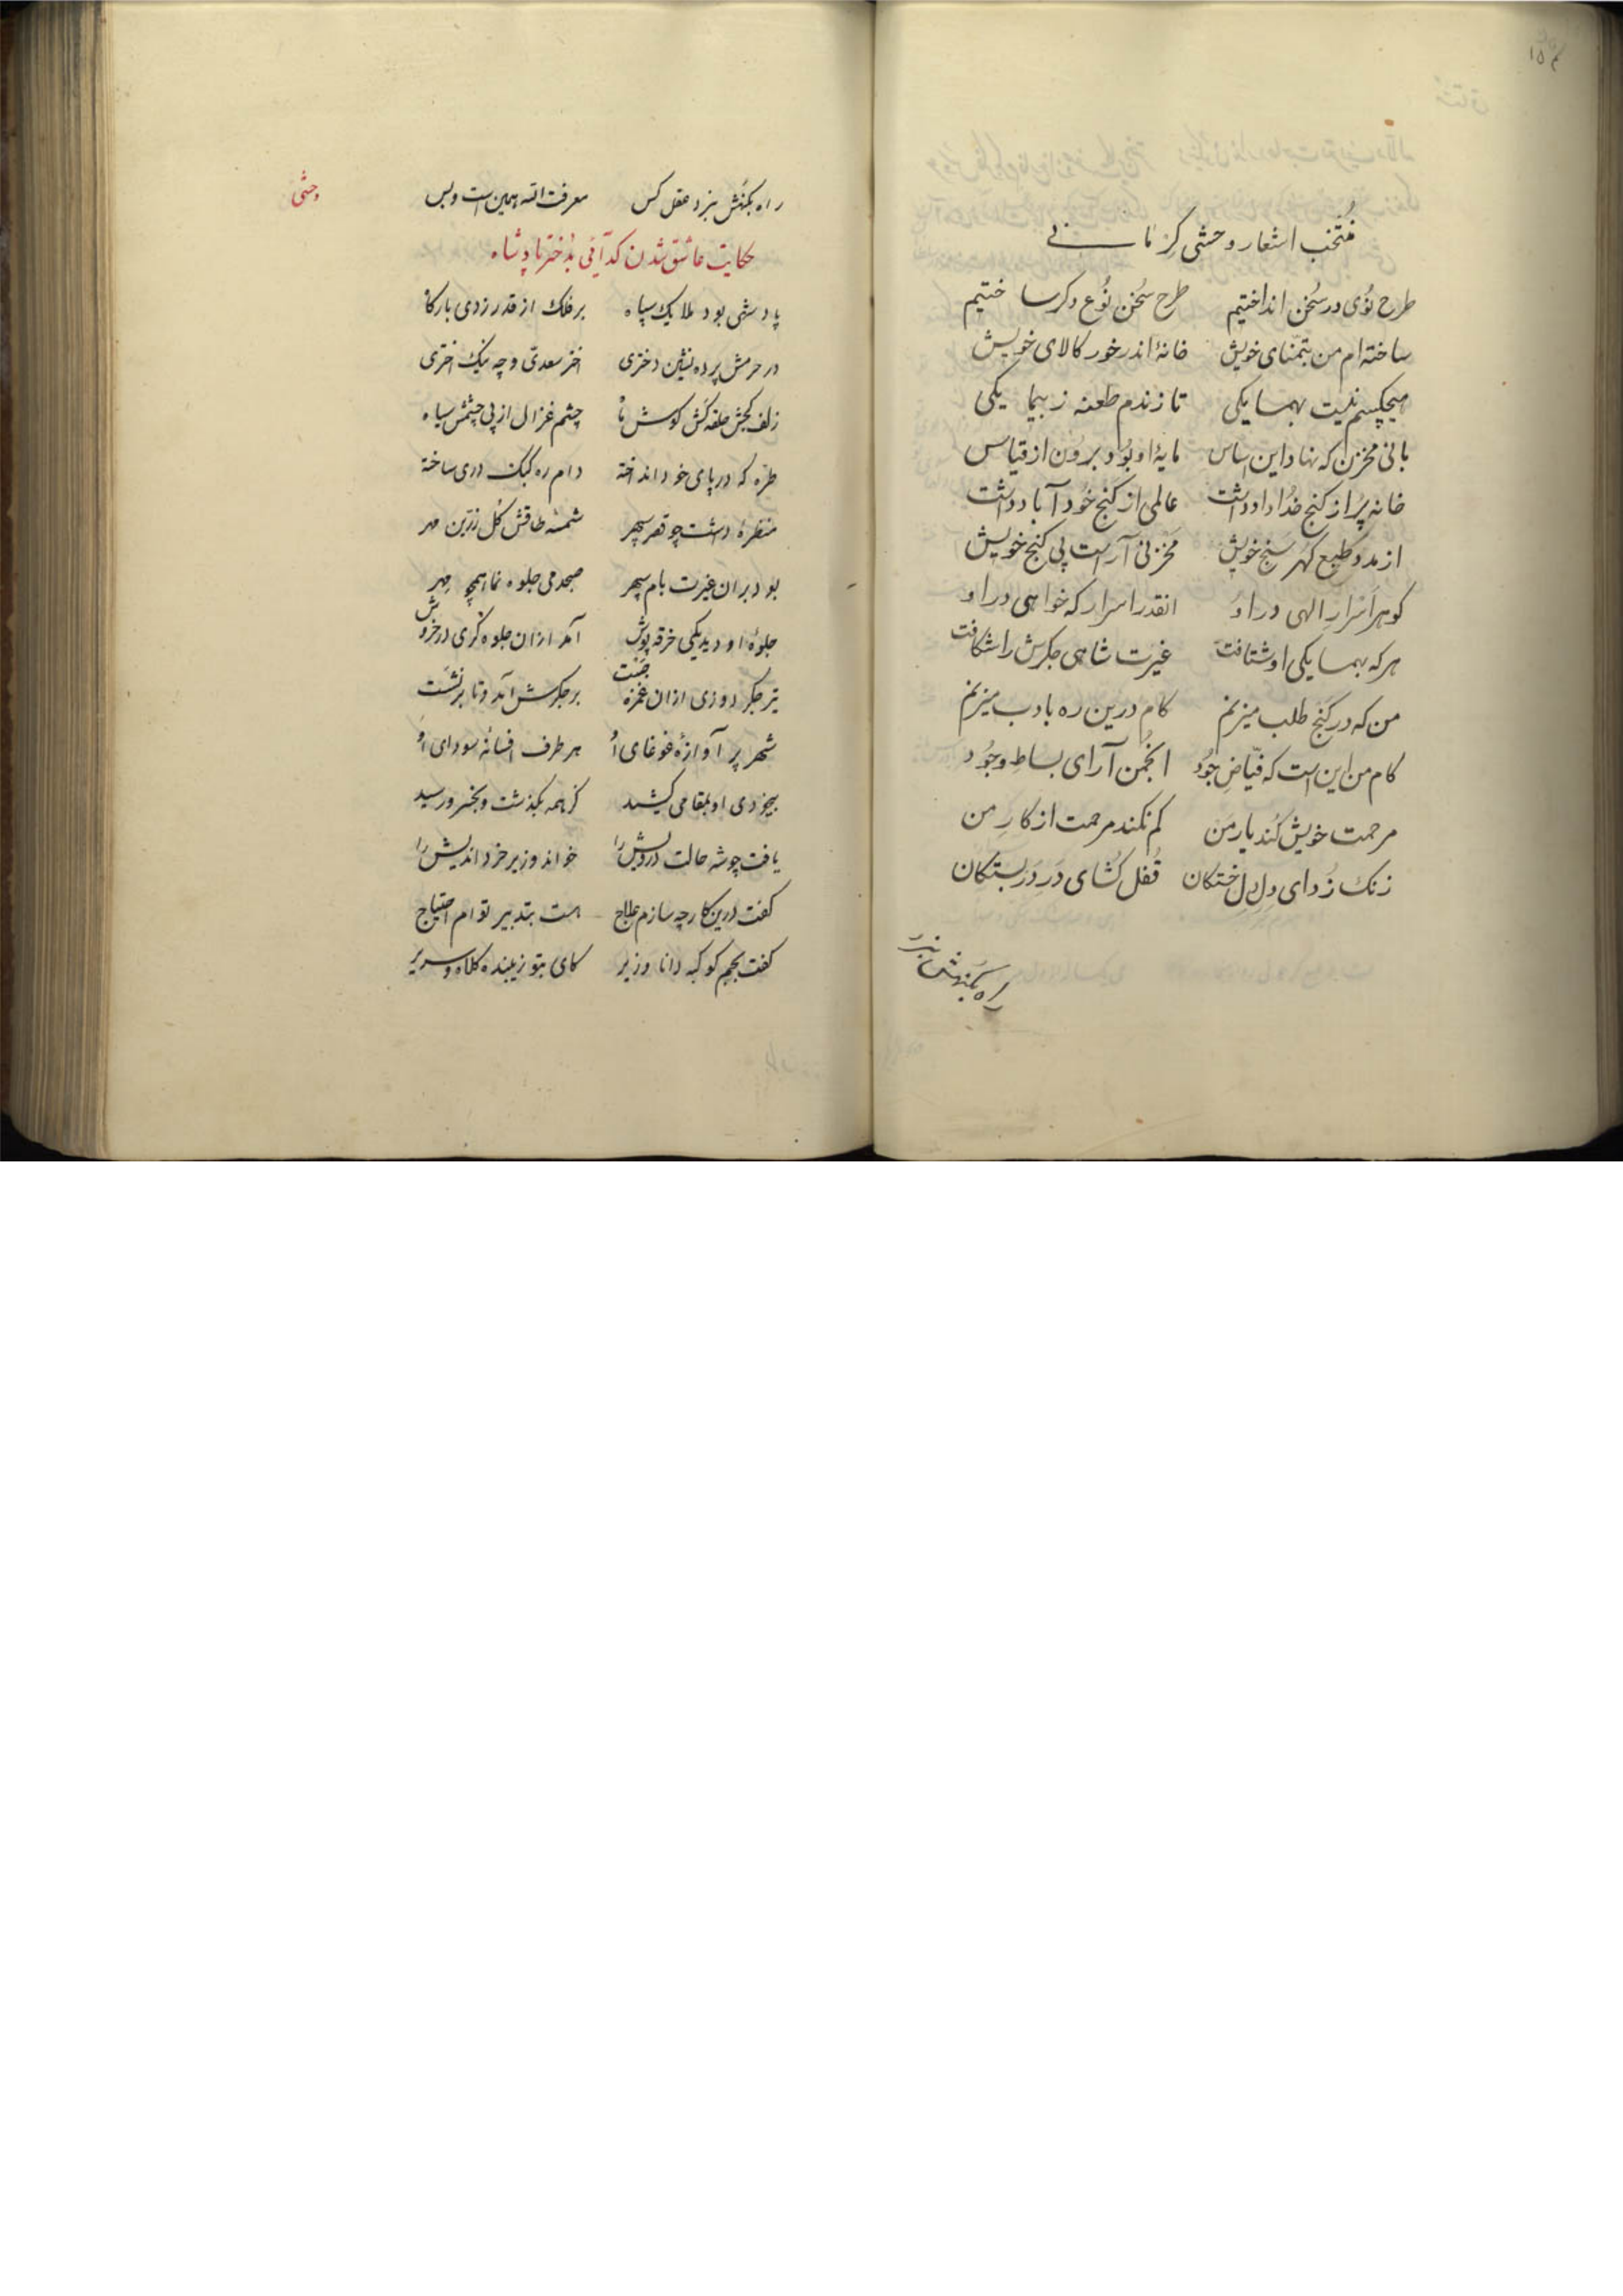 ۱۵۴
منتخب اشعار وحشی کرمانی
طرح نوی در سخن انداختیم طرح سخن نوع دکر ساختیم
ساخته‌ام من بتمنای خویش خانهٔ اندر خور کالای خویش
هیچکسم نیست بهمسایکی تا زندم طعنه ز بیمایکی
بانی مخزن که نهاد این اساس مایهٔ او بود برون از قیاس
خانه پر از کنج خداداد داشت عالمی از کنج خود آباد داشت
از مدد طبع کهر سنج خویش مخزنی آراست پی کنج خویش
کوهر اسرار الهی در او انقدر اسرار که خواهی در او
هر که بهمسایکی او شتافت غیرت شاهی جکرش را شکافت
من که در کنج طلب میزنم کام درین ره بادب میزنم
کام من این است که فیاض جود انجمن آرای بساط وجود
مرحمت خویش کند یار من کم نکند مرحمت از کار من
زنک زدای دل دلخستکان قفل کشای در دربستکان
راه بکنهش نبرد
وحشی
راه بکنهش نبرد عقل کس معرفت الله همین است و بس
حکایت عاشق شدن کدائی بدختر پادشاه
پادشهی بود ملایک سپاه بر فلک از قدر زدی بارکاه
در حرمش پرده نشین دختری اختر سعدی و چه نیک اختری
زلف کجش حلقه کش کوش ماه چشم غزال از پی چشمش سیاه
طره که در پای خود انداخته دام ره کبک دری ساخته
منظرهٔ داشت چو قصر سپهر شمسه طاقش کل زرین مهر
بود بران غیرت بام سپهر صبحدمی جلوه نما همچو مهر
جلوهٔ او دید یکی خرقه پوش آمد ازان جلوه کری در خروش
تیر جکر دوزی ازان غمزه جست بر جکرش آمد و تا پر نشست
شهر پر آوازهٔ غوغای او هر طرف افسانه سودای او
بیخودی او بمقامی کشید کز همه بکذشت و بخسرو رسید
یافت چو شه حالت درویش را خواند وزیر خرد اندیش را
کفت درین کار چه سازم علاج هست بتدبیر تو ام احتیاج
کفت بجم کوکبه دانا وزیر کای بتو زیبنده کلاه و سریر